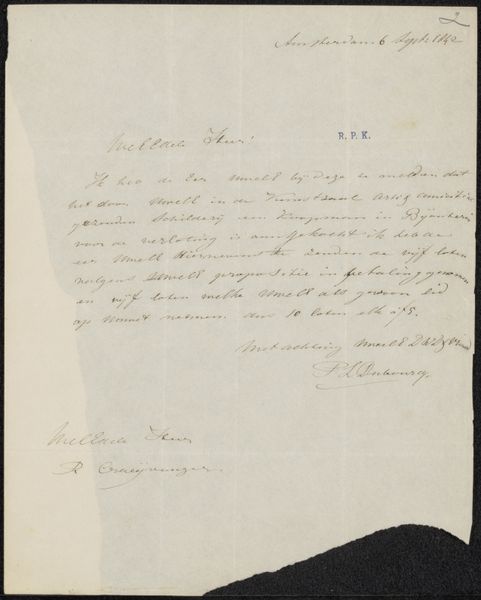 2
Amsterdam 6 Sept 1842
R. P. K.
WelEdele Heer!
Ik heb de Eer UwelE bij deze te melden dat
het door UwelE in de Kunstzaal Arti & Amicitiae
gezonden Schilderij een Koopman in
voor de verloting is aangekocht ik heb de
eer UwelE Hiernevens te zenden de vijf loten
volgens UwelE propositie in betaling genomen
en vijf loten welke UwelE als gewoon lid
op moet nemen dus 10 loten elk à f5.
Met achting UwelE DWD
P L Dubourcq
WelEdele Heer
R Craeijvanger